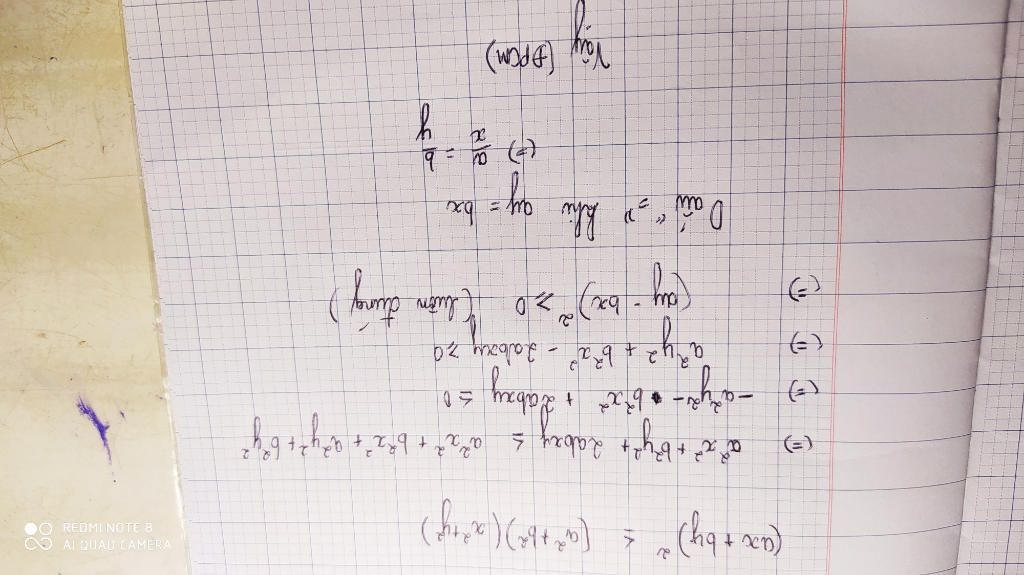 (ax + by)² ≤ (a² + b²)(x² + y²)
(=) a²x² + b²y² + 2abxy ≤ a²x² + b²x² + a²y² + b²y²
(=) -a²y² - b²x² + 2abxy ≤ 0
(=) a²y² + b²x² - 2abxy ≥ 0
(=) (ay - bx)² ≥ 0 (luôn đúng)
Dấu "=" khi ay = bx
(=) a/x = b/y
Vậy (ĐPCM)
REDMI NOTE 8
AI QUAD CAMERA